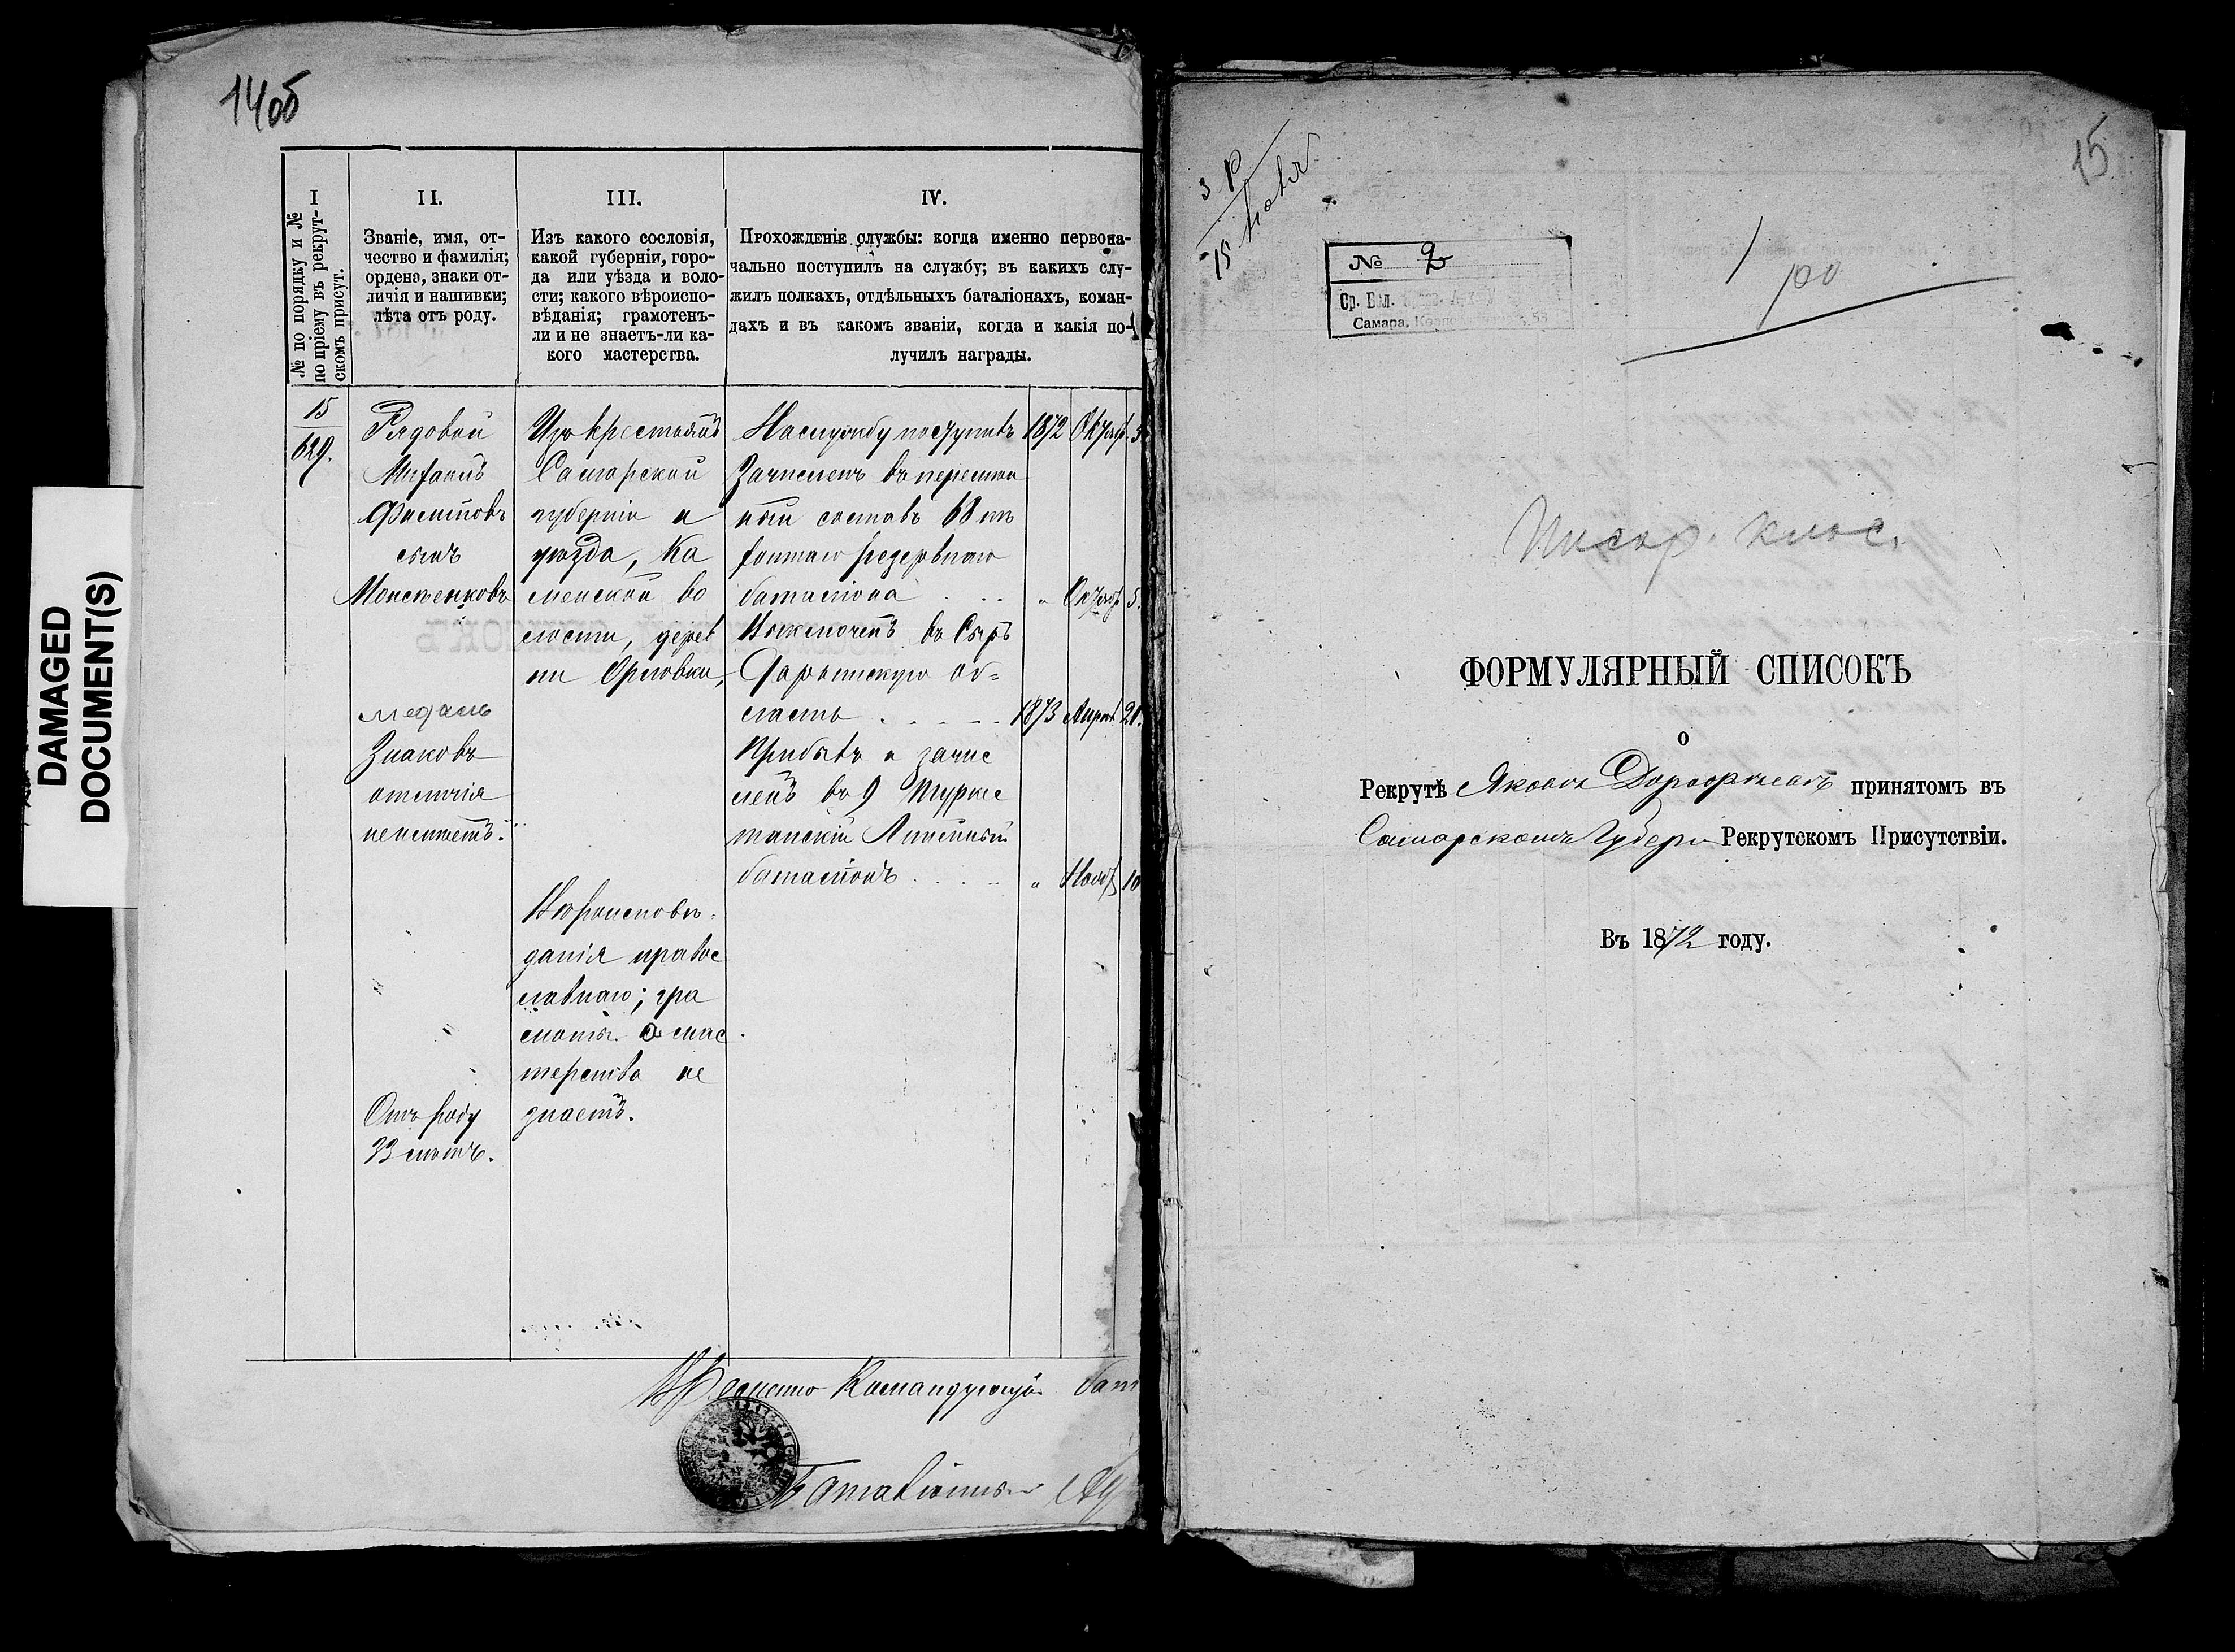 14об
I
№ по порядку и №
по пріему въ рекрут-
скомъ присут.
II.
Званіе, имя, от-
чество и фамилія;
ордена, знаки от-
личія и нашивки;
лѣта отъ роду.
III.
Изъ какого сословія,
какой губерніи, горо-
да или уѣзда и воло-
сти; какого вѣроиспо-
вѣданія; грамотенъ-
ли и не знаетъ-ли ка-
кого мастерства.
IV.
Прохожденіе службы: когда именно первона-
чально поступилъ на службу; въ какихъ слу-
жилъ полкахъ, отдѣльныхъ баталіонахъ, коман-
дахъ и въ какомъ званіи, когда и какія по-
лучилъ награды.
15
629.
Рядовой
Филиповъ
сынъ
Моисеенковъ
медаль
Знаковъ
отличія
неимѣетъ.
Отъ роду
23 лѣтъ.
Изъ крестьянъ
Самарской
губерніи и
уѣзда, Ка
менской во
лости, дерев
ни Орловки,
Вѣроисповѣ-
данія правос
лавнаго; гра
мотѣ и мас
терства не
знаетъ.
На службу поступилъ 1872 Октяб.
Зачисленъ въ перемѣн
ный составъ 68 пѣ
хотнаго резервнаго
баталіона . . . „ Октяб 5.
Исключенъ въ Сыръ
Дарьинскую об=
ласть . . . . . 1873 Апрѣл. 21.
Прибылъ и зачис
ленъ въ 9 Туркес
танскій Линейный
баталіонъ . . . . „ Нояб 10
Временно Командующій бат
Баталіонный Ад
DAMAGED
DOCUMENT(S)
15
3 р
15
№ 2
Самара,
1
100
Писар. клас.
ФОРМУЛЯРНЫЙ СПИСОКЪ
О
Рекрутѣ Яковѣ принятомъ въ
Самарскомъ Губерн Рекрутскомъ Присутствіи.
Въ 1872 году.